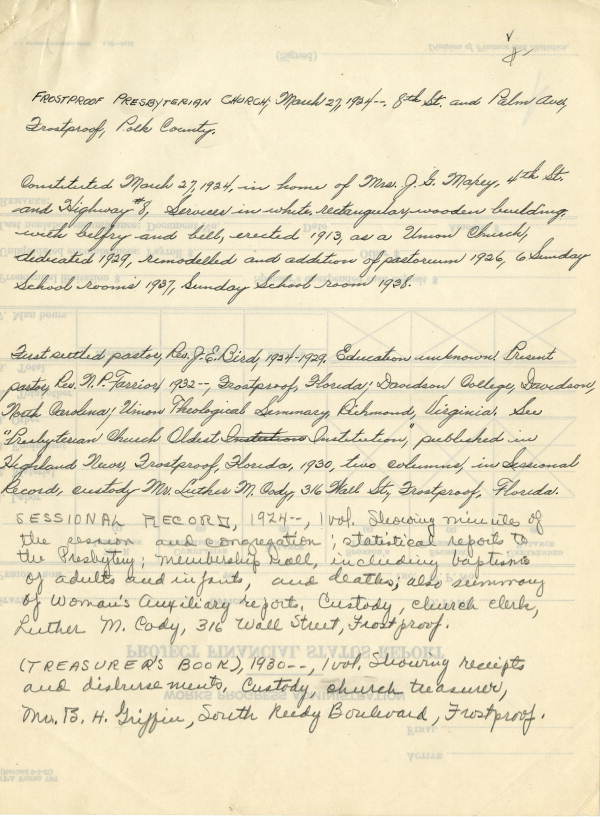 FROSTPROOF PRESBYTERIAN CHURCH, March 27, 1924--. 8th St. and Palm Ave,
Frostproof, Polk County.
Constituted March 27, 1924, in home of Mrs. J. G. Maxey, 4th St.
and Highway #8, Services in white, rectangular, wooden building,
with belfry and bell, erected 1913, as a Union Church,
dedicated 1929, remodelled and addition of pastorium 1926, 6 Sunday
School rooms 1937, Sunday School room 1938.
First settled pastor, Rev. J. E. Bird, 1924-1929. Education unknown. Present
pastor, Rev. N. P. Farrior, 1932--, Frostproof, Florida; Davidson College, Davidson,
North Carolina; Union Theological Seminary, Richmond, Virginia. See
"Presbyterian Church Oldest Institution", published in
Highland News, Frostproof, Florida, 1930, two columns, in Sessional
Record, custody Mr. Luther M. Cody, 316 Wall St., Frostproof, Florida.
SESSIONAL RECORD, 1924--, 1 vol. Showing minutes of
the session and congregation; statistical reports to
the Presbytery; membership Roll, including baptisms
of adults and infants, and deaths; also summary
of Woman's Auxiliary reports. Custody, church clerk,
Luther M. Cody, 316 Wall Street, Frostproof.
(TREASURER'S BOOK), 1930--, 1 vol. Showing receipts
and disbursements. Custody church treasurer,
Mrs. B. H. Griffin, South Reedy Boulevard, Frostproof.
PROJECT FINANCIAL STATUS REPORT
WORKS PROGRESS ADMINISTRATION